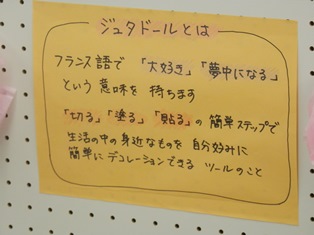 ジュタドールとは
フランス語で 「大好き」「夢中になる」
という 意味を 持ちます
「切る」「塗る」「貼る」の 簡単ステップで
生活の中の身近なものを 自分好みに
簡単にデコレーションできる ツールのこと